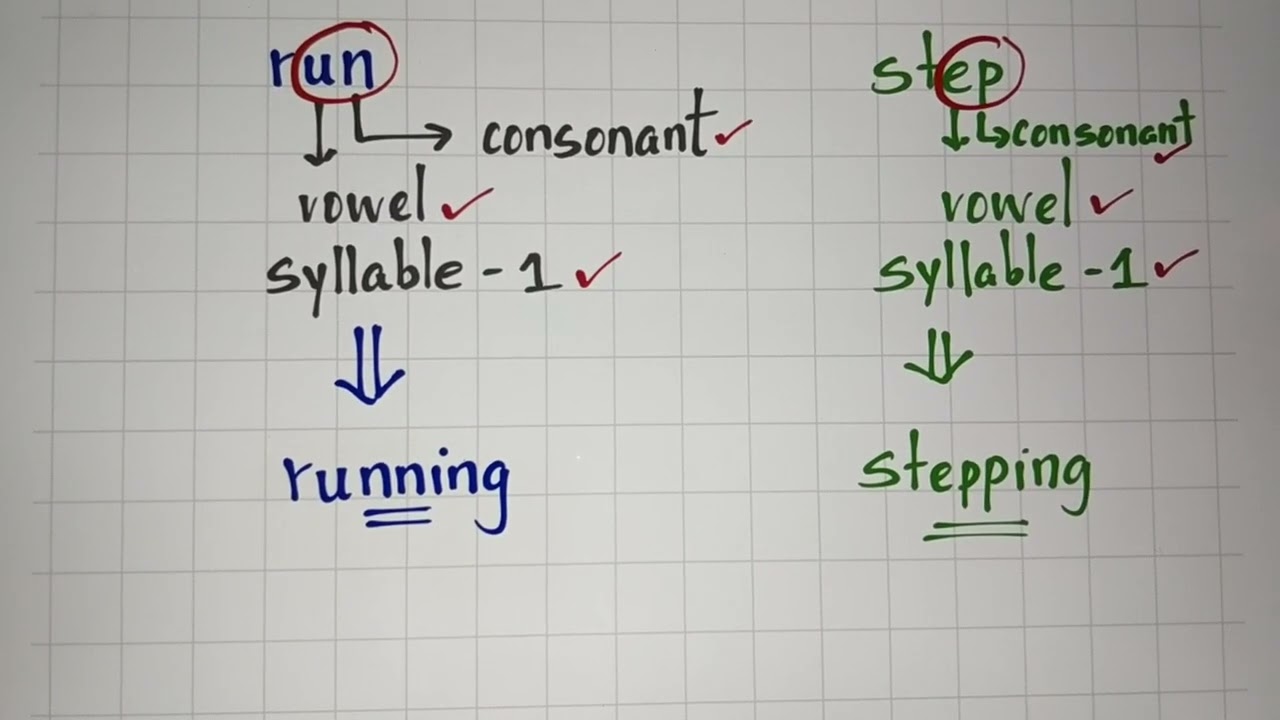 run
consonant
vowel
syllable - 1
running
step
consonant
vowel
syllable - 1
stepping